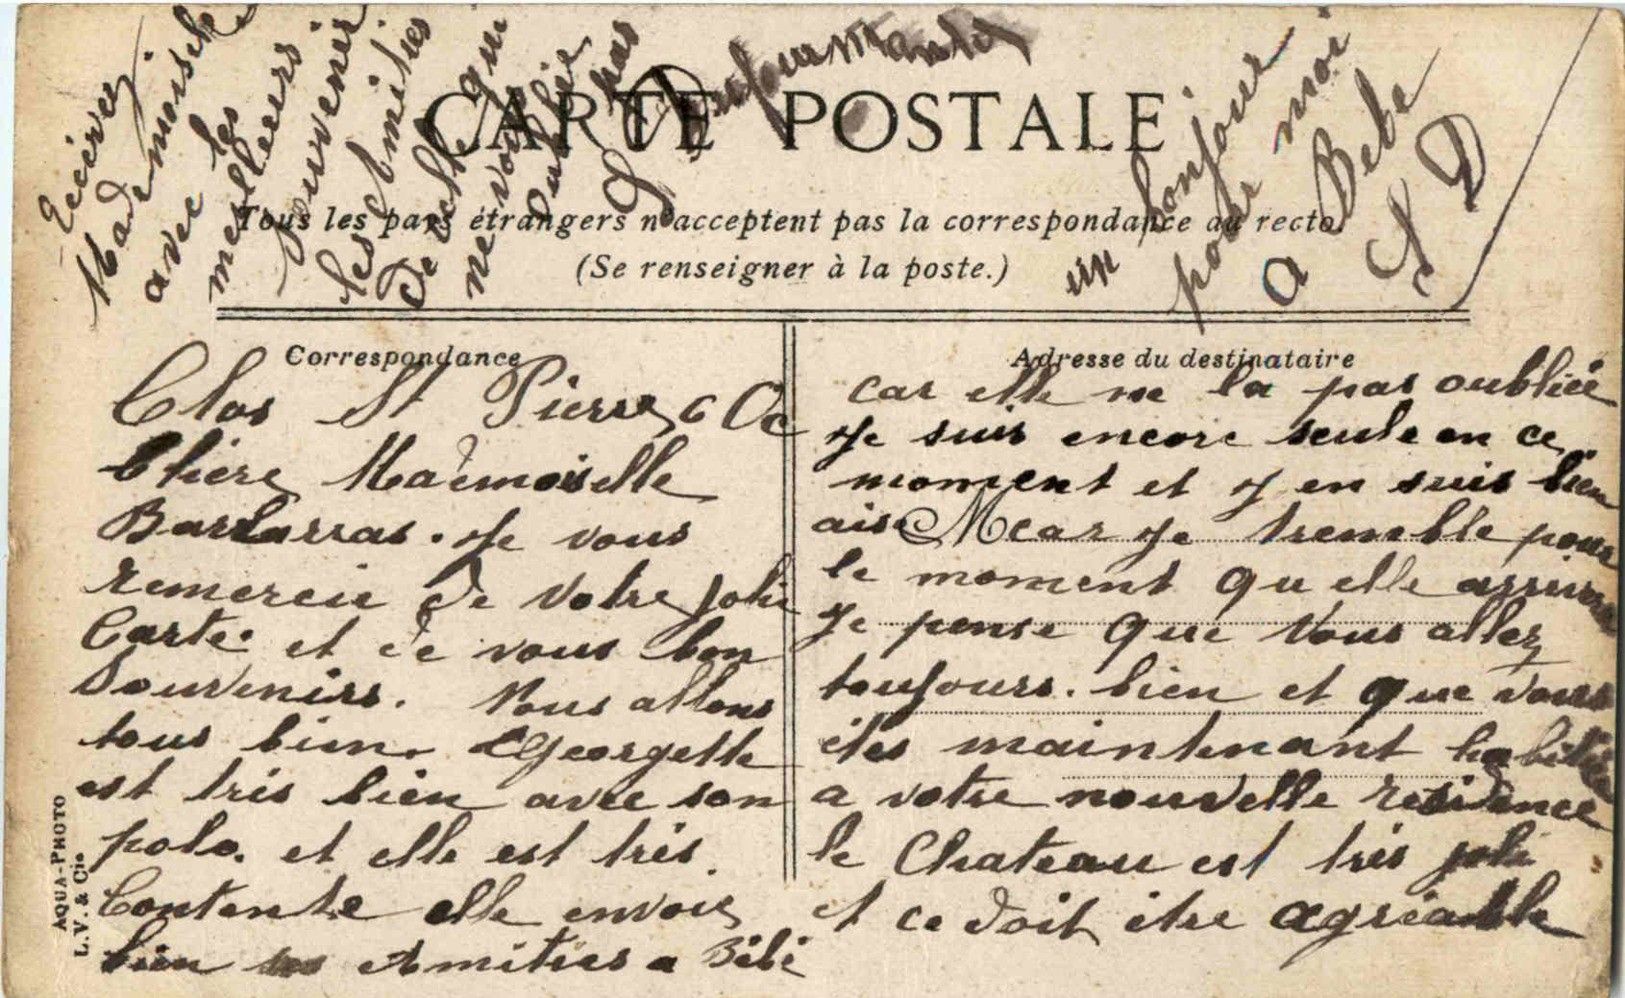 CARTE POSTALE
Tous les pays étrangers n'acceptent pas la correspondance au recto.
(Se renseigner à la poste.)
Correspondance
Clos St Pierre 6 Oc
Chère Mademoiselle
Barbarras. Je vous
remercie de votre jolie
Carte. et de vous bon
Souvenirs. Nous allons
tous bien. Georgette
est très bien avec son
polo. et elle est très
Contente elle envoie
bien ses Amities a Bébé
Adresse du destinataire
car elle ne la pas oubliée
Je suis encore seule en ce
moment et j en suis bien
aise car je tremble pour
le moment qu elle arrivera
Je pense que Vous allez
toujours. bien et que vous
êtes maintenant habituée
a votre nouvelle residence
le Chateau est très joli
et ce doit être agréable
Mademoiselle
avec les
meilleurs
souvenir
les Amitiés
de celle qui
ne vous
oublie
pas
un bonjour
pour moi
a Bebe
S D
AQUA-PHOTO
L. V. & Cie